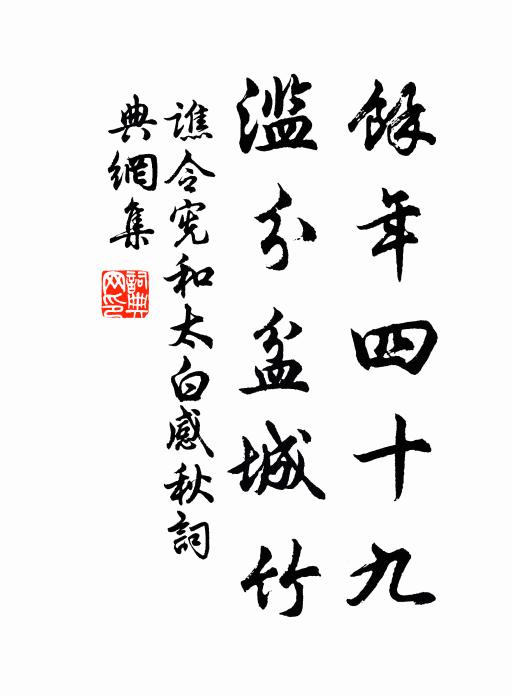 餘年四十九
濫分盆城竹
譙令宪和太白感秋詞
典網集
詞典網印